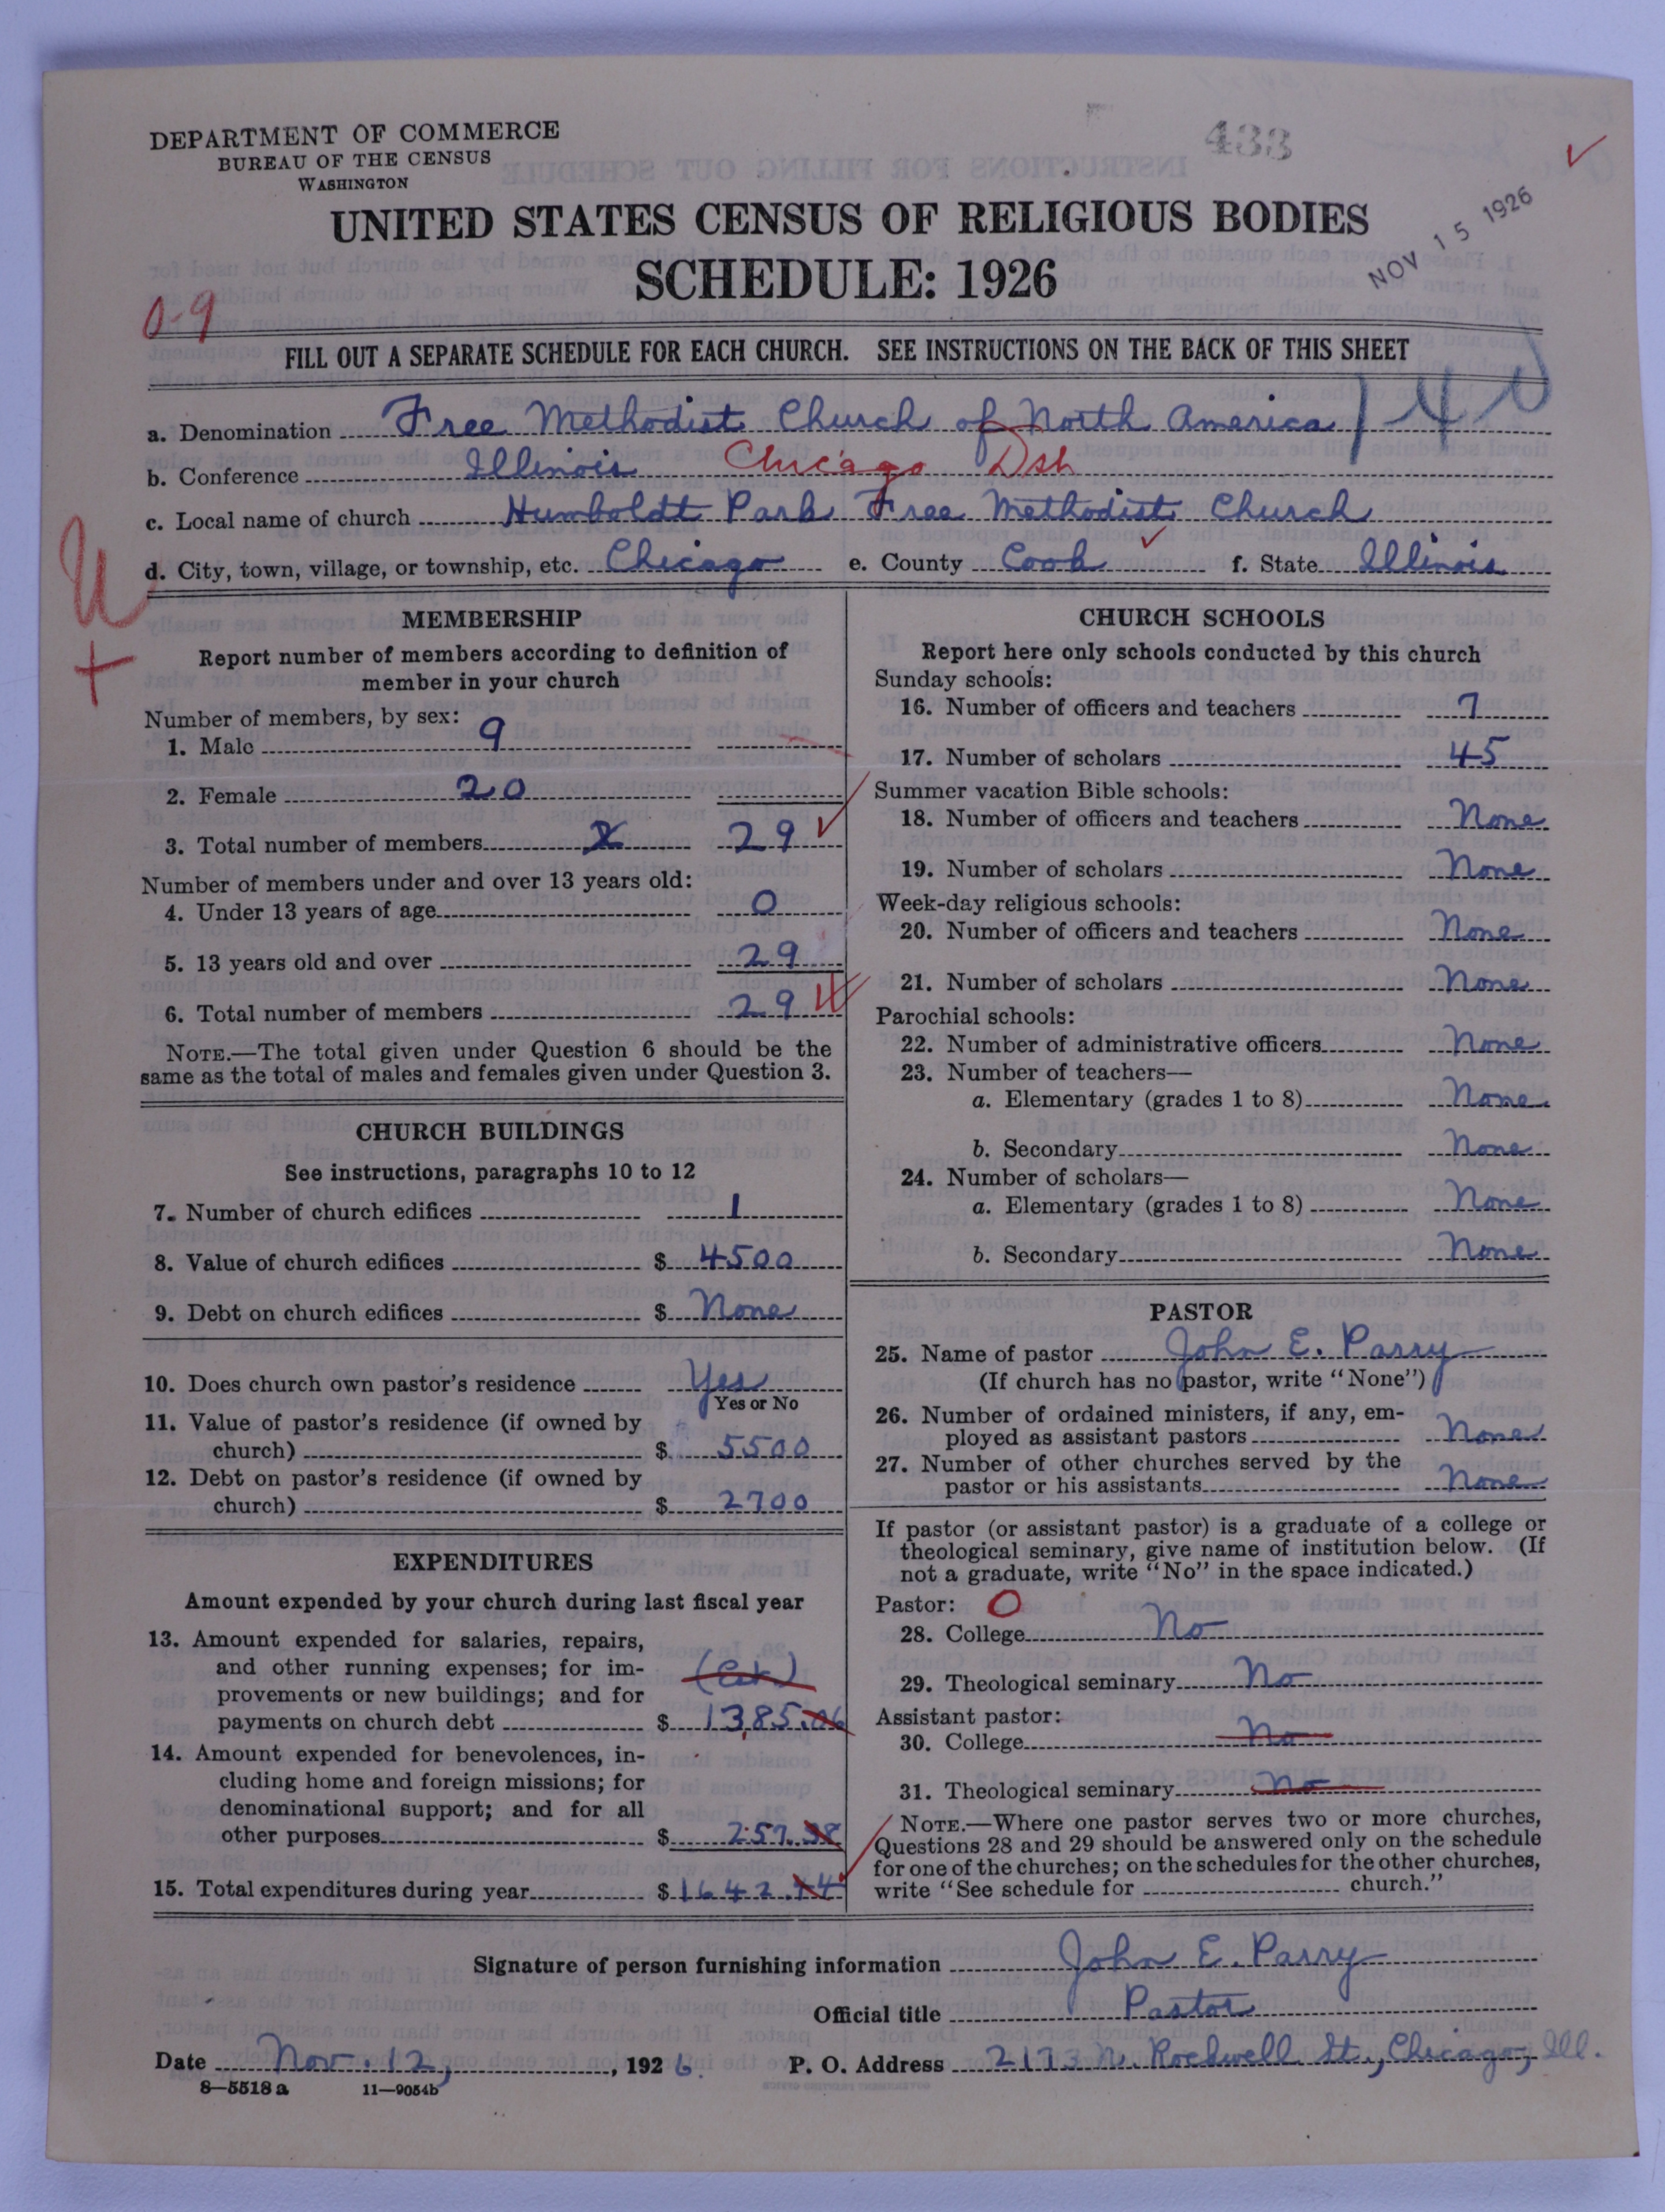 433
DEPARTMENT OF COMMERCE
BUREAU OF THE CENSUS
WASHINGTON
UNITED STATES CENSUS OF RELIGIOUS BODIES
SCHEDULE: 1926
NOV 15 1926
0-9
FILL OUT A SEPARATE SCHEDULE FOR EACH CHURCH. SEE INSTRUCTIONS ON THE BACK OF THIS SHEET
a. Denomination Free Methodist Church of North America
b. Conference Illinois Chicago Dsh
c. Local name of church Humboldt Park Free Methodist Church
d. City, town, village, or township, etc. Chicago e. County Cook f. State Illinois
U
+
MEMBERSHIP
Report number of members according to definition of
member in your church
Number of members, by sex:
1. Male 9
2. Female 20
3. Total number of members 29
Number of members under and over 13 years old:
4. Under 13 years of age 0
5. 13 years old and over 29
6. Total number of members 29
NOTE.—The total given under Question 6 should be the
same as the total of males and females given under Question 3.
CHURCH BUILDINGS
See instructions, paragraphs 10 to 12
7. Number of church edifices 1
8. Value of church edifices $ 4500
9. Debt on church edifices $ None
10. Does church own pastor's residence Yes
Yes or No
11. Value of pastor's residence (if owned by
church) $ 5500
12. Debt on pastor's residence (if owned by
church) $ 2700
EXPENDITURES
Amount expended by your church during last fiscal year
13. Amount expended for salaries, repairs,
and other running expenses; for im-
provements or new buildings; and for (Est.)
payments on church debt $ 1385.06
14. Amount expended for benevolences, in-
cluding home and foreign missions; for
denominational support; and for all
other purposes $ 257.38
15. Total expenditures during year $ 1642.44
CHURCH SCHOOLS
Report here only schools conducted by this church
Sunday schools:
16. Number of officers and teachers 7
17. Number of scholars 45
Summer vacation Bible schools:
18. Number of officers and teachers None
19. Number of scholars None
Week-day religious schools:
20. Number of officers and teachers None
21. Number of scholars None
Parochial schools:
22. Number of administrative officers None
23. Number of teachers—
a. Elementary (grades 1 to 8) None
b. Secondary None
24. Number of scholars—
a. Elementary (grades 1 to 8) None
b. Secondary None
PASTOR
25. Name of pastor John E. Parry
(If church has no pastor, write "None")
26. Number of ordained ministers, if any, em-
ployed as assistant pastors None
27. Number of other churches served by the
pastor or his assistants None
If pastor (or assistant pastor) is a graduate of a college or
theological seminary, give name of institution below. (If
not a graduate, write "No" in the space indicated.)
Pastor: 0
28. College No
29. Theological seminary No
Assistant pastor:
30. College No
31. Theological seminary No
NOTE.—Where one pastor serves two or more churches,
Questions 28 and 29 should be answered only on the schedule
for one of the churches; on the schedules for the other churches,
write "See schedule for church."
Signature of person furnishing information John E. Parry
Official title Pastor
Date Nov. 12, 1926. P. O. Address 2173 N. Rockwell St., Chicago, Ill.
8—5518 a 11—9054b